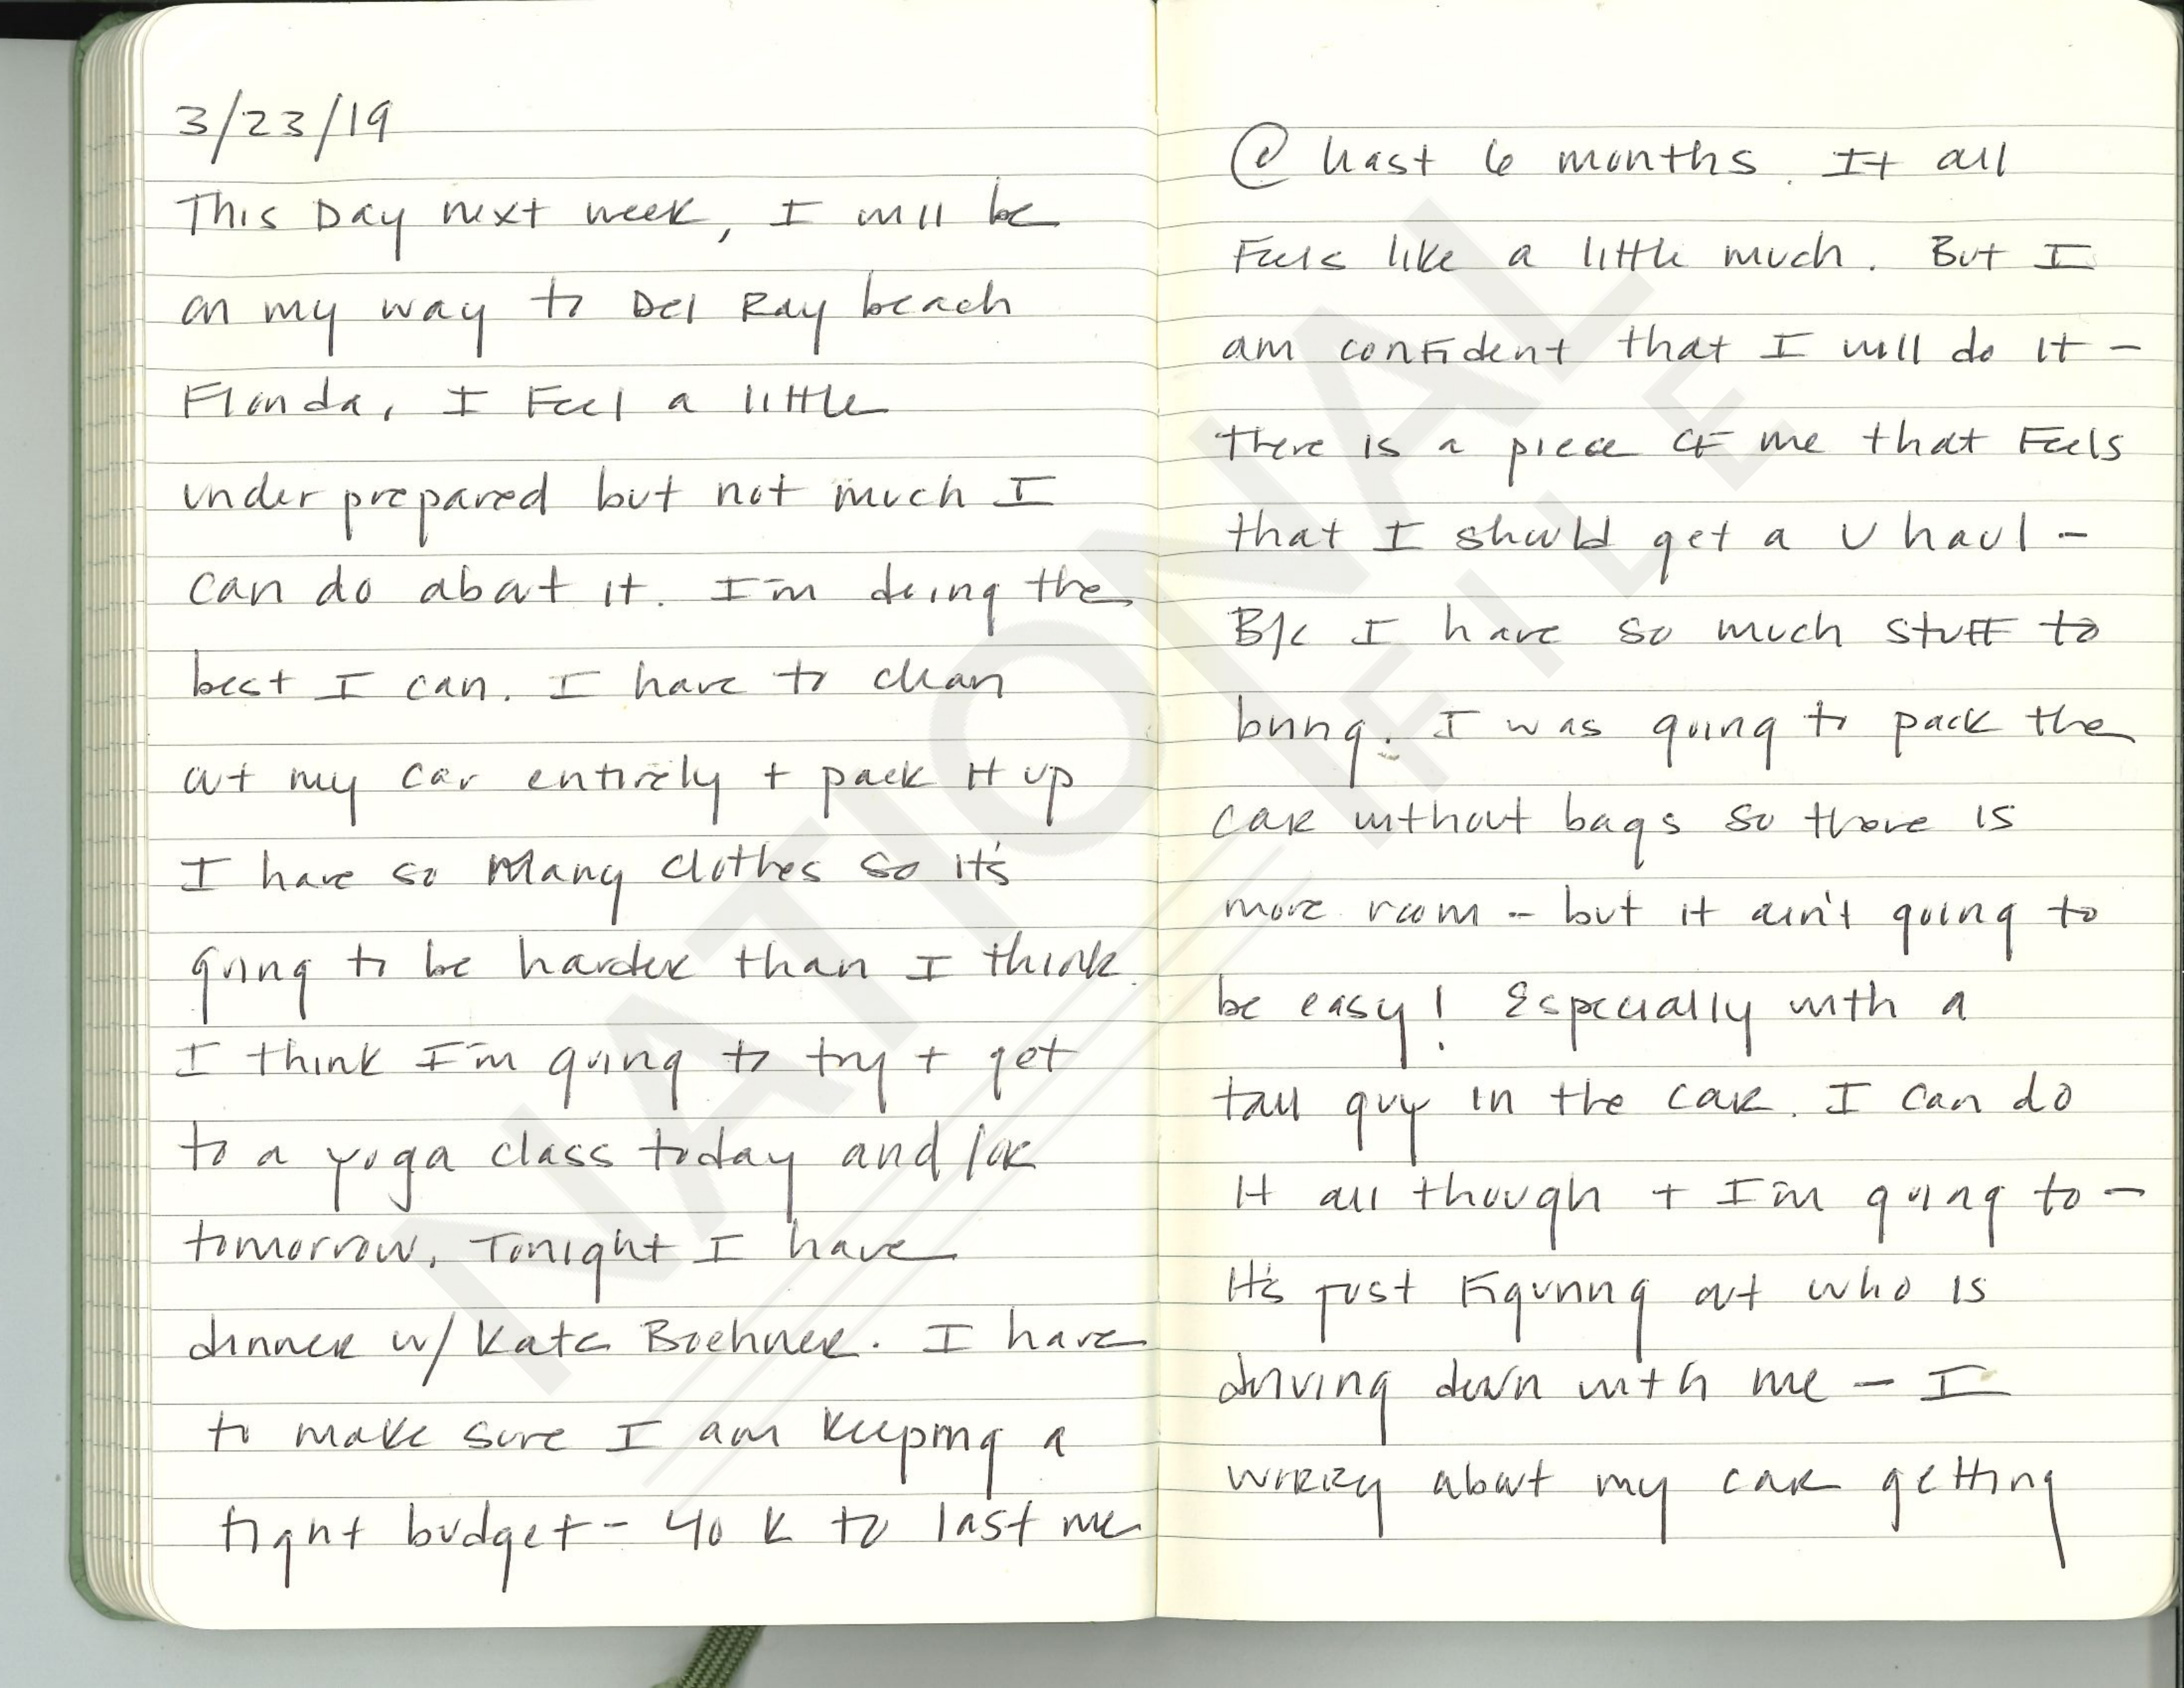 3/23/19
This Day next week, I will be
on my way to Del Ray beach
Florida, I Feel a little
under prepared but not much I
can do about it. I'm doing the
best I can. I have to clean
out my car entirely + pack it up
I have so many clothes so it's
going to be harder than I think.
I think I'm going to try + get
to a yoga class today and/or
tomorrow. Tonight I have
dinner w/ Kate Boehner. I have
to make sure I am keeping a
tight budget - 40 K to last me
@ least 6 months. It all
Feels like a little much. But I
am confident that I will do it -
There is a piece of me that Feels
that I should get a U haul -
B/c I have so much stuff to
bring. I was going to pack the
car without bags so there is
more room - but it ain't going to
be easy! Especially with a
tall guy in the car. I can do
It all though + I'm going to -
It's just Figuring out who is
driving down with me - I
worry about my car getting
NATIONAL
FILE